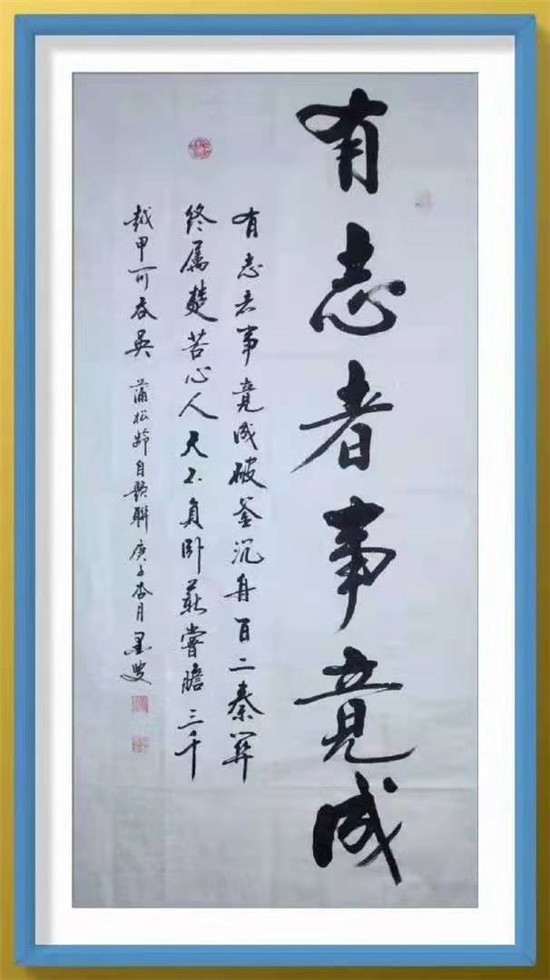 有志者事竟成
有志者事竟成破釜沉舟百二秦關
终属楚苦心人天不負卧薪嘗膽三千
越甲可吞吳 蒲松龄自题聯 庚子杏月 墨叟